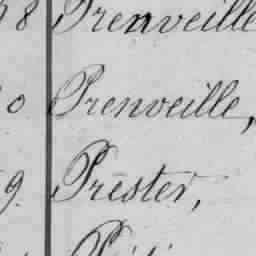 8 Prenveille
0 Prenveille,
9. Prester,